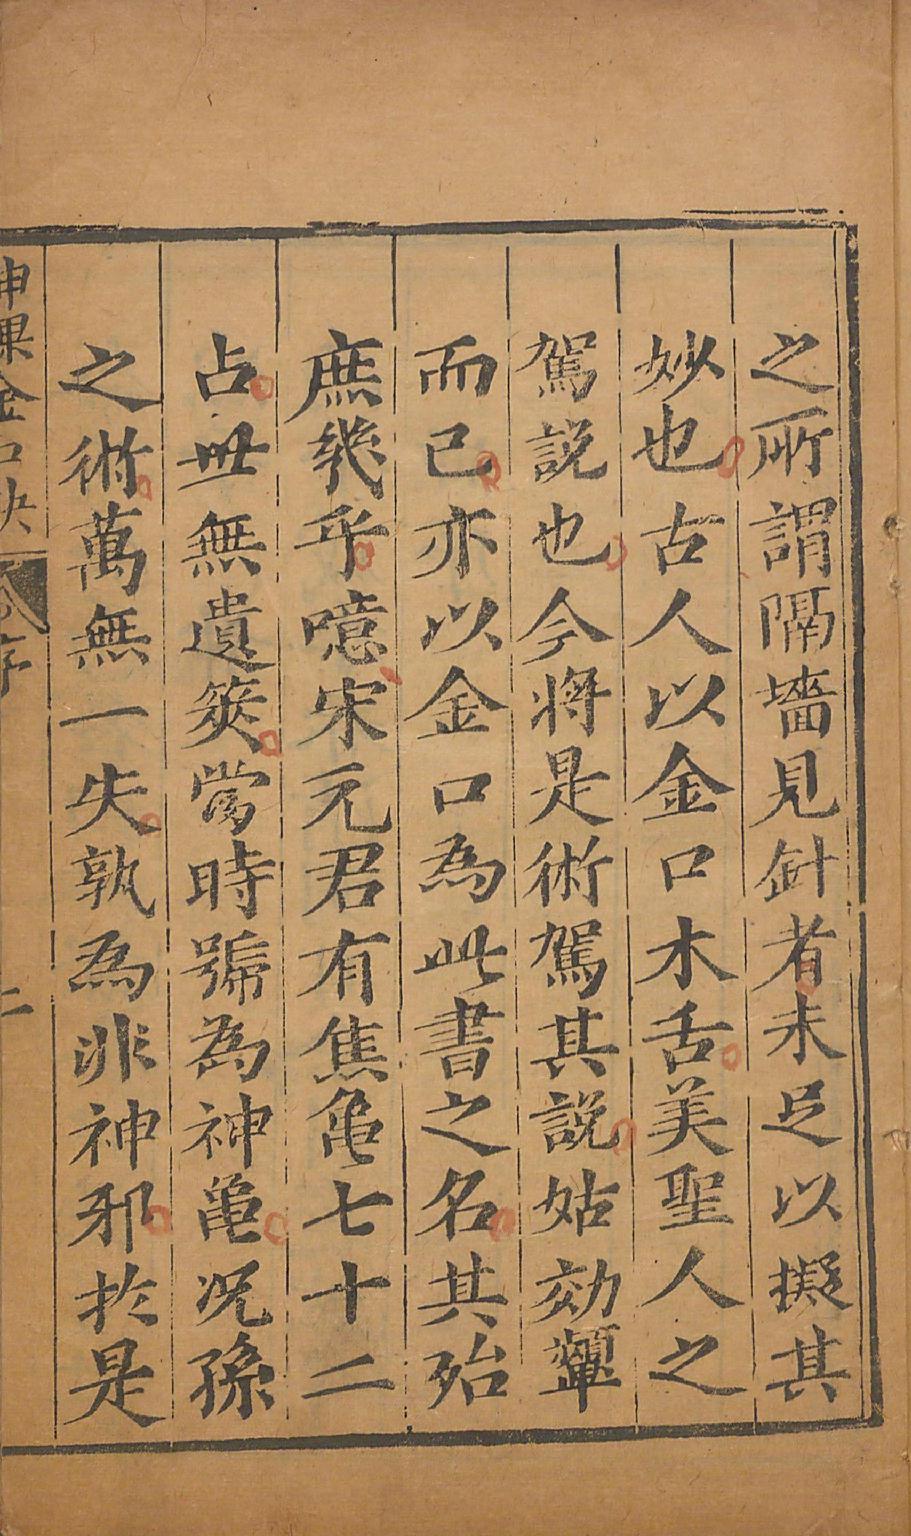 之所謂隔墻見針者未足以擬其
妙也古人以金口木舌美聖人之
駕説也今將是術駕其説姑効顰
而已亦以金口為此書之名其殆
庶幾乎噫宋元君有焦龜七十二
占丗無遺筴當時號為神龜况孫
之術萬無一失孰為非神邪扵是
神課金口訣
序
二